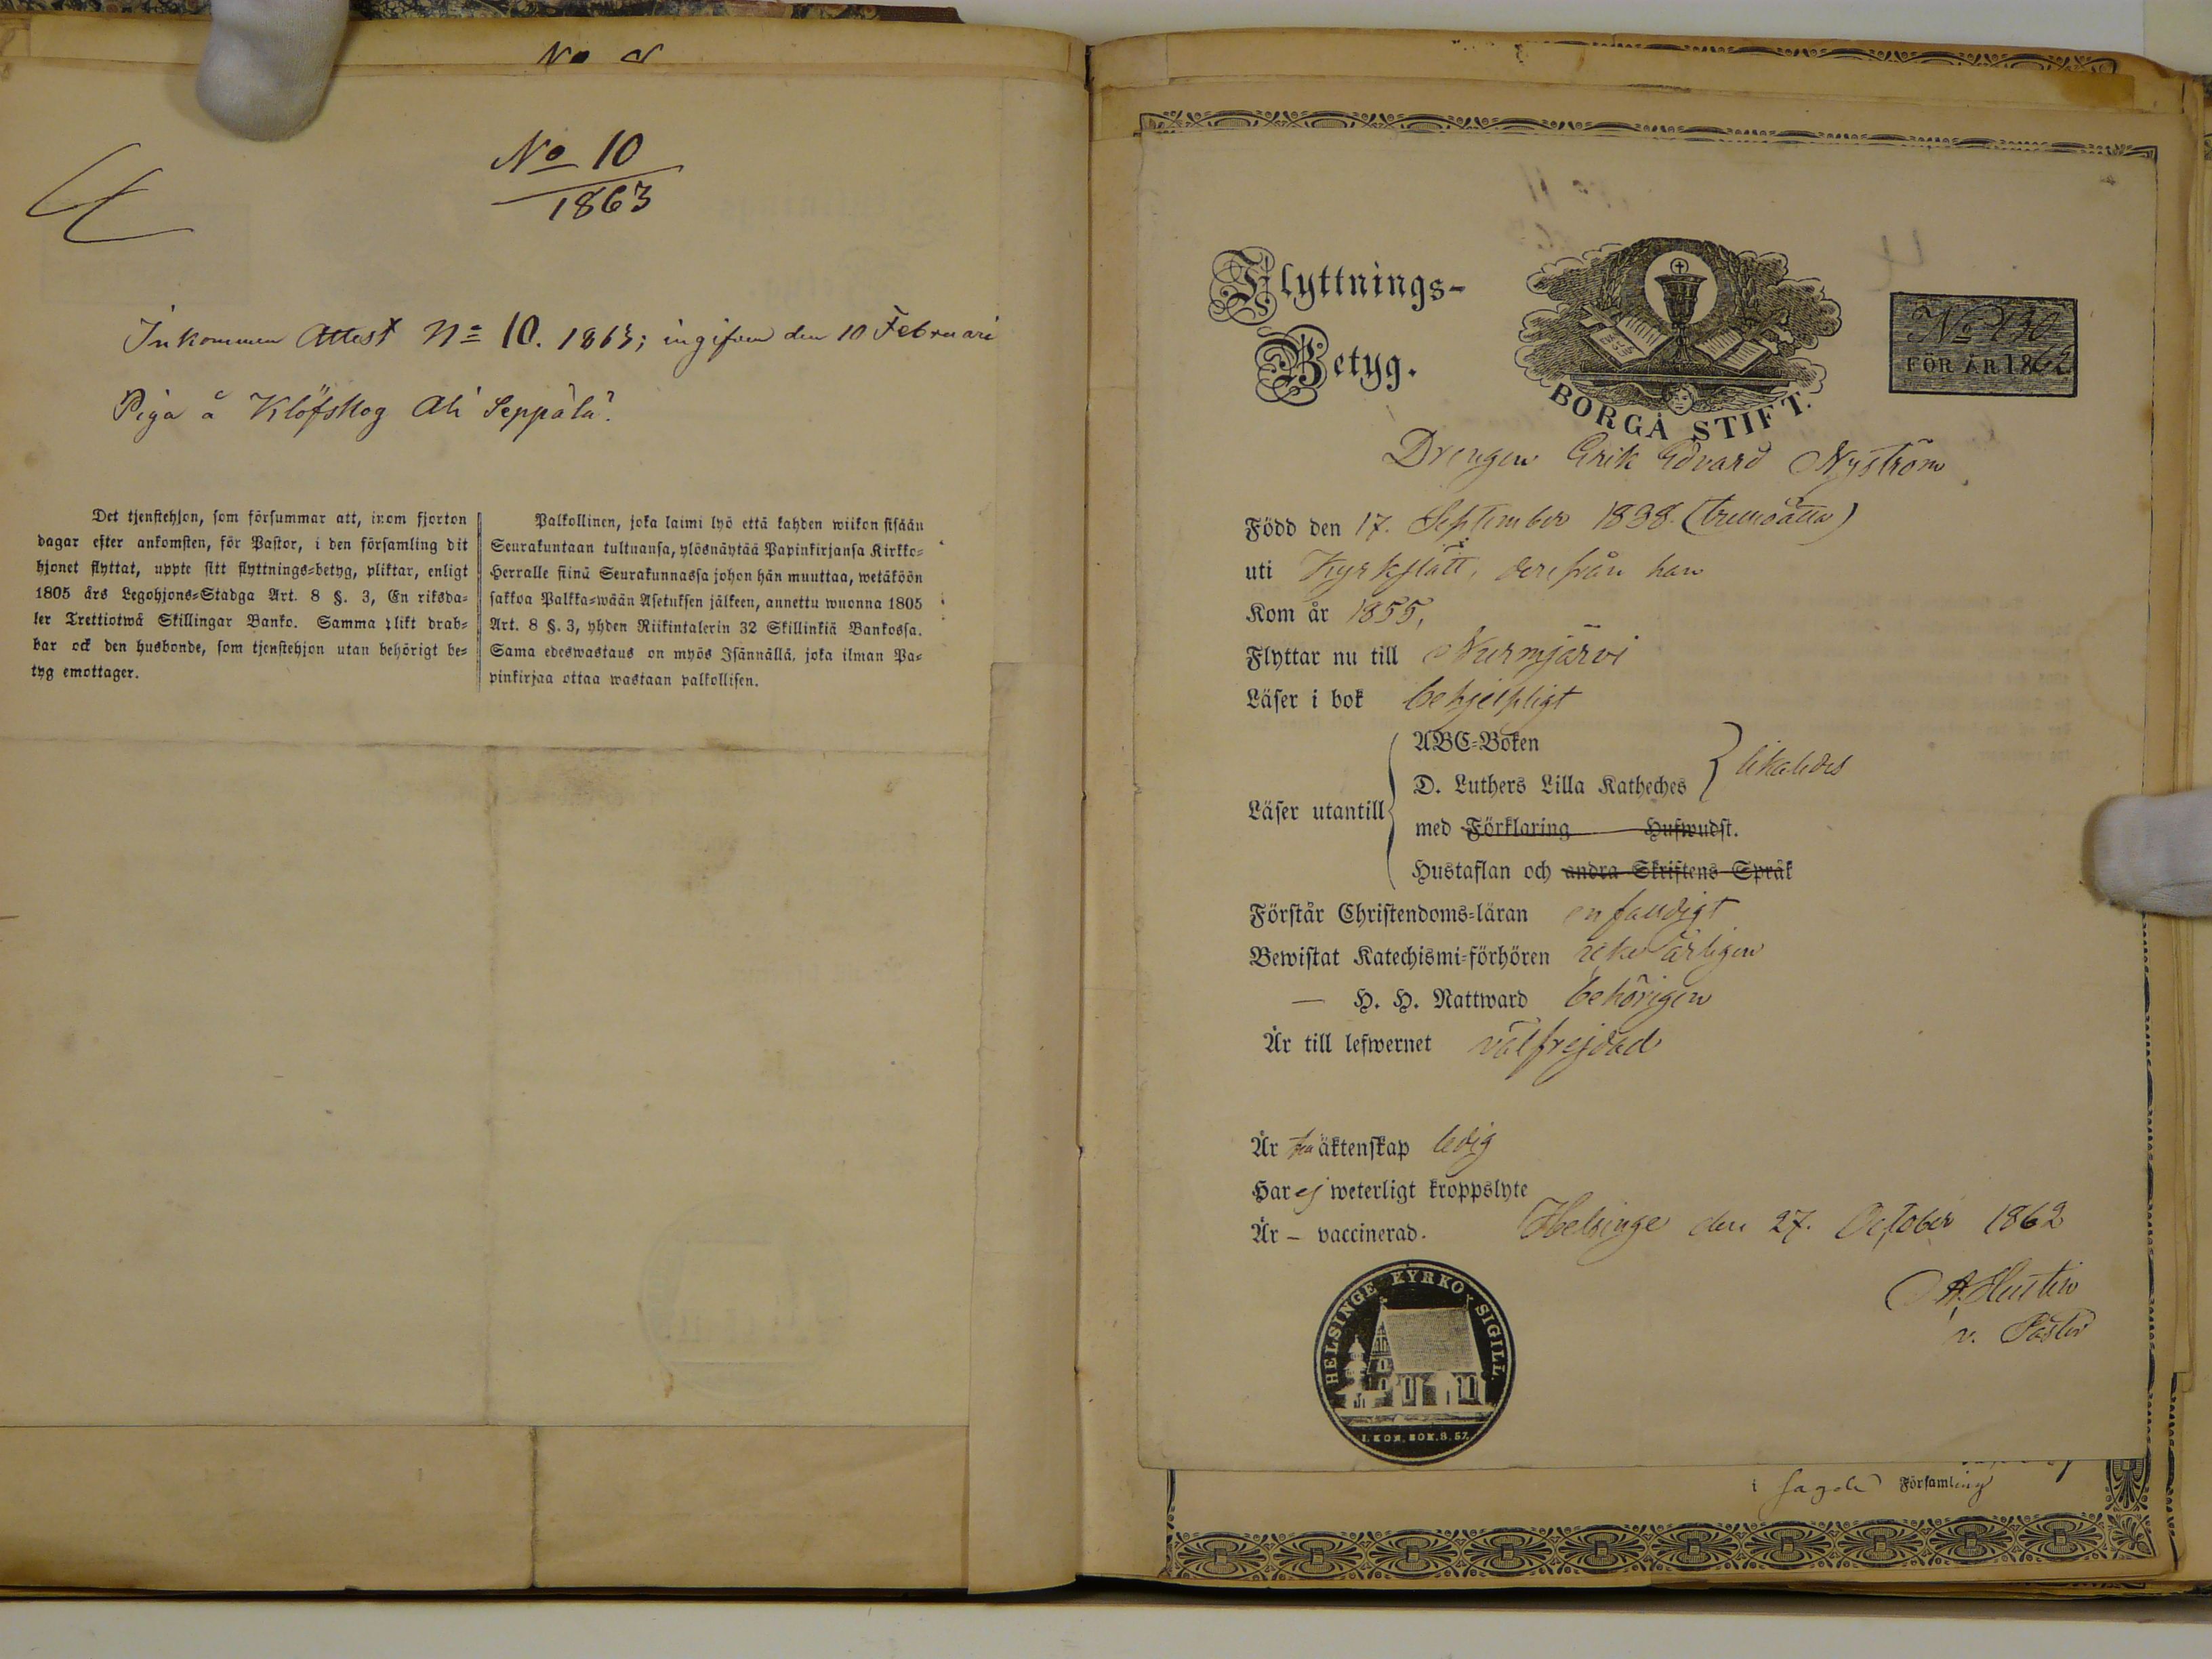 No 10
1863
Inkommen Attest No 10. 1863; ingifven den 10 Februari
Piga å Klöfskog Ali Seppälä.
Det tjenstehjon, som försummar att, inom fjorton
dagar efter ankomsten, för Pastor, i den församling dit
hjonet flyttat, uppte sitt flyttnings-betyg, pliktar, enligt
1805 års Legohjons-Stadga Art. 8 §. 3, En riksda-
ler Trettiotwå Skillingar Banko. Samma plikt drab-
bar ock den husbonde, som tjenstehjon utan behörigt be-
tyg emottager.
Palkollinen, joka laimi lyö että kahden wiikon sisään
Seurakuntaan tultuansa, ylösnäytää Papinkirjansa Kirkko-
Herralle siinä Seurakunnassa johon hän muuttaa, wetäköön
sakkoa Palkka-wään Asetuksen jälkeen, annettu wuonna 1805
Art. 8 §. 3, yhden Riikintalerin 32 Skillinkiä Bankossa.
Sama edeswastaus on myös Isännällä, joka ilman Pa-
pinkirjaa ottaa wastaan palkollisen.
Flyttnings-
Betyg.
BORGÅ STIFT.
No 130
FÖR ÅR 1862
Drengen Erik Edvard Nyström
Född den 17. September 1838. (trettioåtta)
uti Kyrkslätt, derifrån han
Kom år 1855,
Flyttar nu till Nurmijärvi
Läser i bok behjelpligt
Läser utantill
ABC-Boken
D. Luthers Lilla Katheches } likaledes
med Förklaring Hufwudst.
Hustaflan och andra Skriftens Språk
Förstår Christendoms-läran enfaldigt
Bewistat Katechismi-förhören icke årligen
— H. H. Nattward behörigen
Är till lefwernet välfrejdad
Är från äktenskap ledig
Har ej weterligt kroppslyte
Är – vaccinerad.
Helsinge den 27. October 1862
v. Pastor
HELSINGE KYRKO SIGILL.
1. KON. BOK. 8. 57.
i sagde Församling